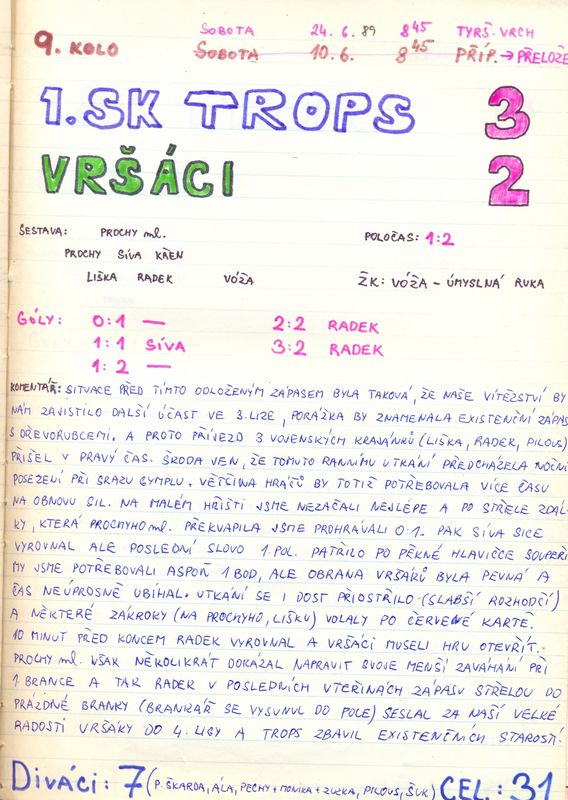 SOBOTA 24.6.89 8 45 TYRŠ. VRCH
9. KOLO SOBOTA 10.6. 8 45 PŘÍP. → PŘELOŽE
1. SK TROPS 3
VRŠÁCI 2
SESTAVA: PROCHY ml. POLOČAS: 1:2
PROCHY SÍVA KŘEN
LIŠKA RADEK VÓŽA ŽK: VÓŽA - ÚMYSLNÁ RUKA
GÓLY: 0:1 — 2:2 RADEK
1:1 SÍVA 3:2 RADEK
1:2 —
KOMENTÁŘ: SITUACE PŘED TÍMTO ODLOŽENÝM ZÁPASEM BYLA TAKOVÁ, ŽE NAŠE VÍTĚZSTVÍ BY
NÁM ZAJISTILO DALŠÍ ÚČAST VE 3. LIZE, PORÁŽKA BY ZNAMENALA EXISTENČNÍ ZÁPAS
S DŘEVORUBCEMI. A PROTO PŘÍJEZD 3 VOJENSKÝCH KRAJÁNKŮ (LIŠKA, RADEK, PILOUS)
PŘIŠEL V PRAVÝ ČAS. ŠKODA JEN, ŽE TOMUTO RANNÍMU UTKÁNÍ PŘEDCHÁZELA NOČNÍ
POSEZENÍ PŘI SRAZU GYMPLU. VĚTŠINA HRÁČŮ BY TOTIŽ POTŘEBOVALA VÍCE ČASU
NA OBNOVU SIL. NA MALÉM HŘIŠTI JSME NEZAČALI NEJLÉPE A PO STŘELE ZDÁL-
KY, KTERÁ PROCHYHO ml. PŘEKVAPILA JSME PROHRÁVALI 0:1. PAK SÍVA SICE
VYROVNAL ALE POSLEDNÍ SLOVO 1. POL. PATŘILO PO PĚKNÉ HLAVIČCE SOUPEŘI
MY JSME POTŘEBOVALI ASPOŇ 1 BOD, ALE OBRANA VRŠÁKŮ BYLA PEVNÁ A
ČAS NEÚPROSNĚ UBÍHAL. UTKÁNÍ SE I DOST PŘIOSTŘILO (SLABŠÍ ROZHODČÍ)
A NĚKTERÉ ZÁKROKY (NA PROCHYHO, LIŠKU) VOLALY PO ČERVENÉ KARTE.
10 MINUT PŘED KONCEM RADEK VYROVNAL A VRŠÁCI MUSELI HRU OTEVŘÍT.
PROCHY ml. VŠAK NĚKOLIKRÁT DOKÁZAL NAPRAVIT SVOJE MENŠÍ ZAVÁHÁNÍ PŘI
1 BRANCE A TAK RADEK V POSLEDNÍCH VTEŘINÁCH ZÁPASU STŘELOU DO
PRÁZDNÉ BRANKY (BRANKÁŘ SE VYSUNUL DO POLE) SESLAL ZA NAŠÍ VELKÉ
RADOSTI VRŠÁKY DO 4. LIGY A TROPS ZBAVIL EXISTENČNÍCH STAROSTÍ.
DIVÁCI: 7 (P. ŠKARDA, ÁLA, PECHY + MONIKA + ZUZKA, PILOUS, ŠUK) CEL.: 31